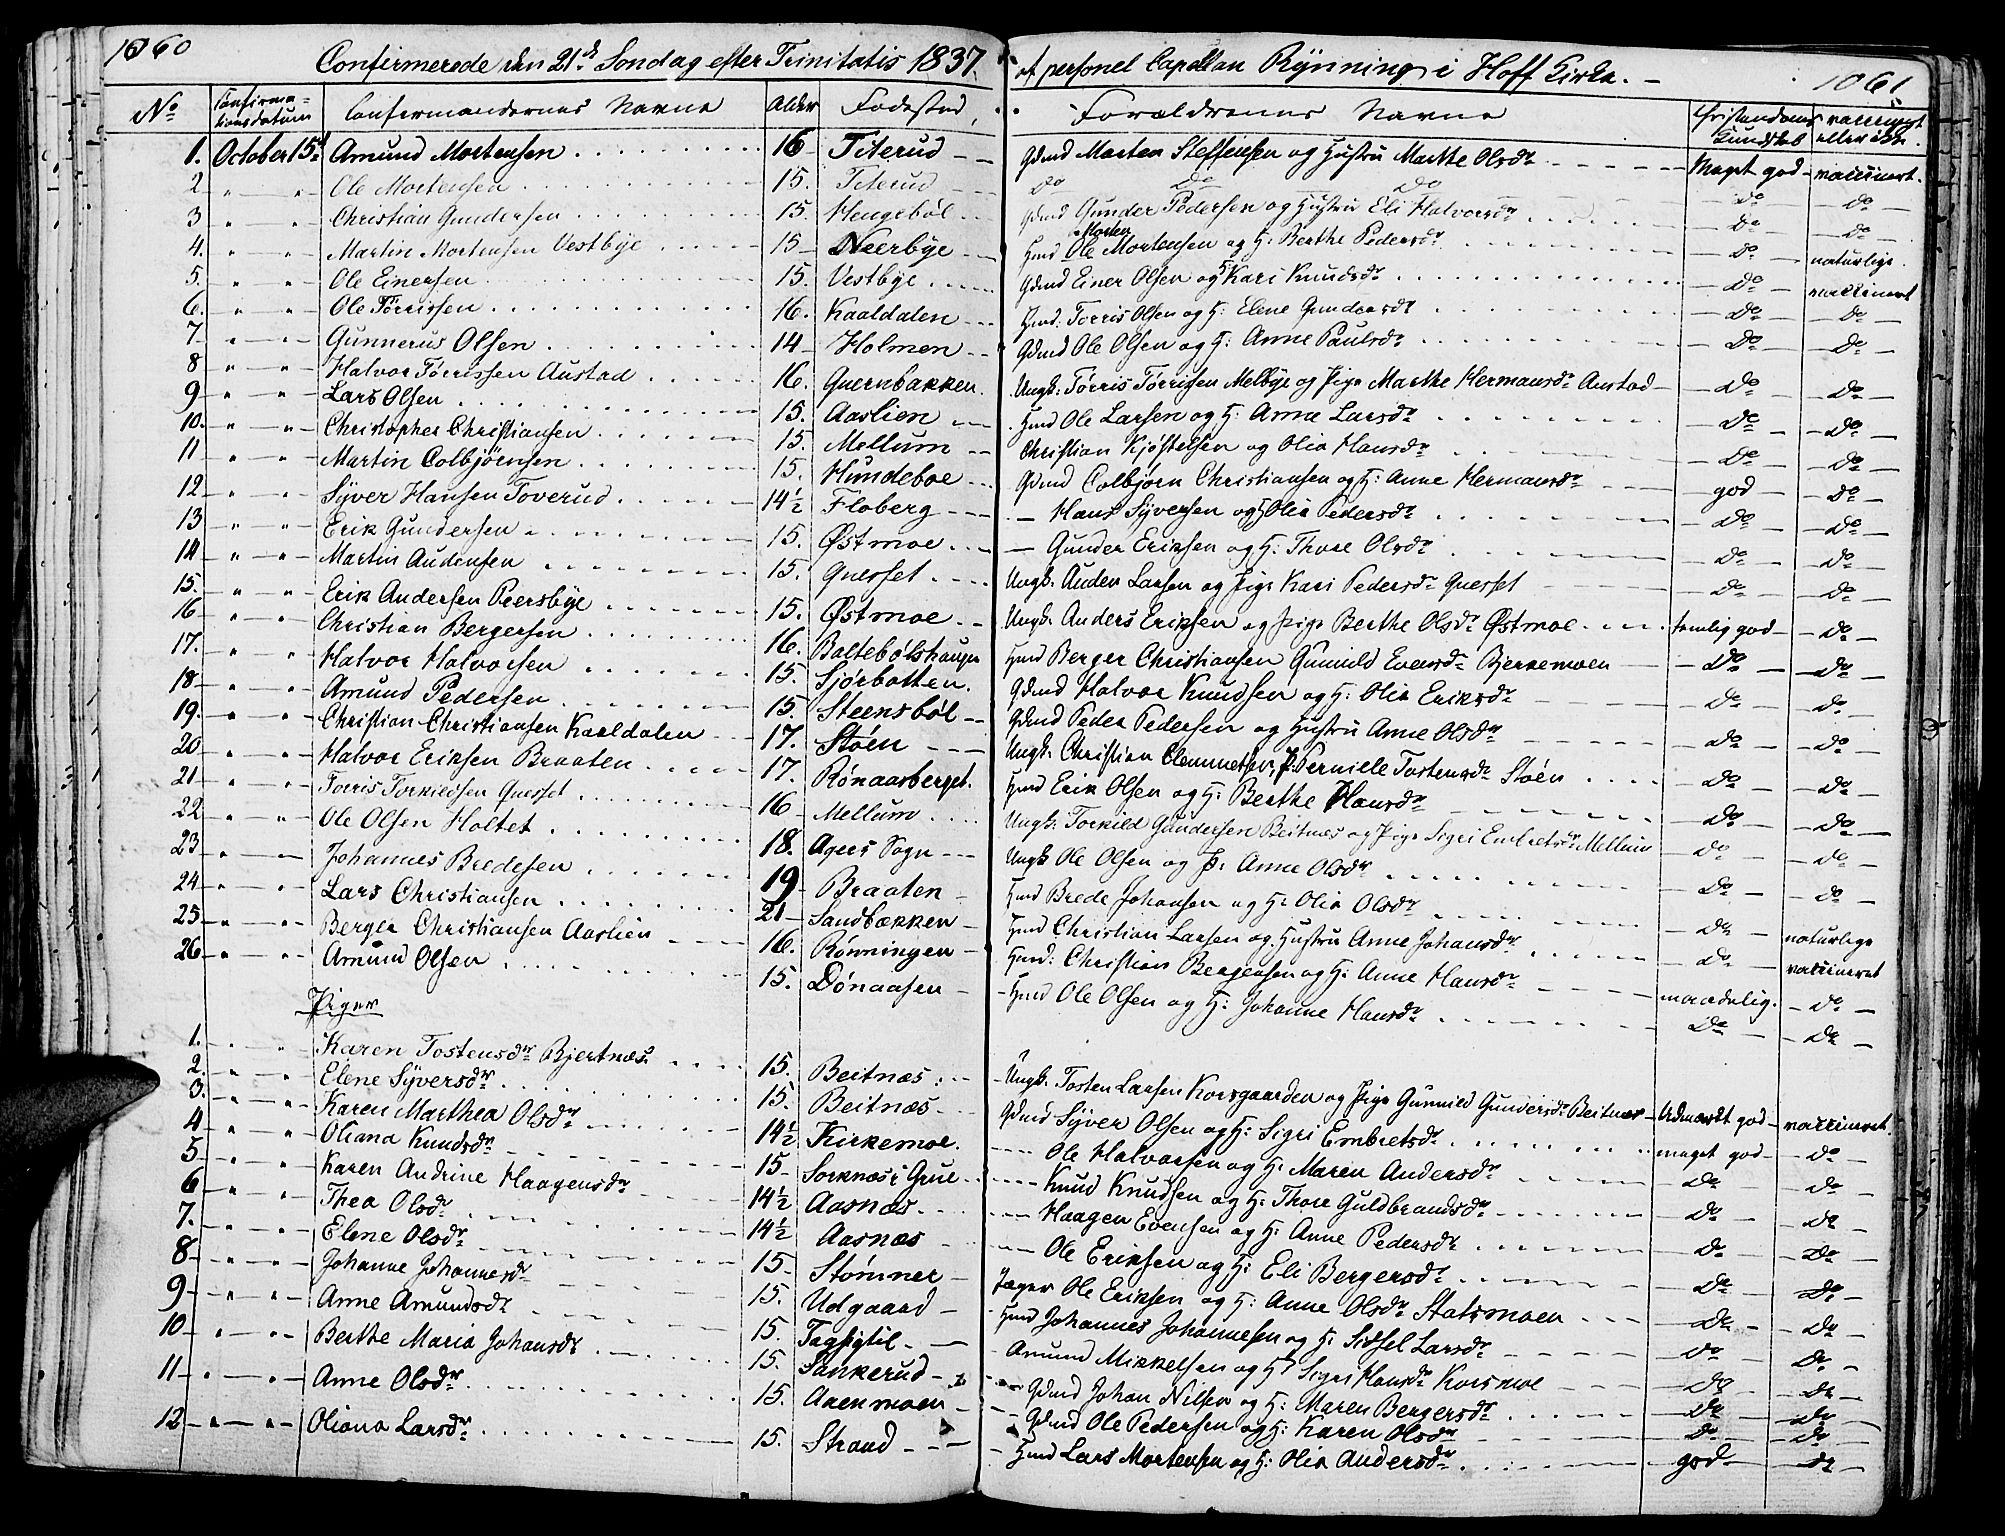 1060
Confirmerede den 21de Søndag efter Trinitatis 1837. af personel Capellan Rynning i Hoff Kirke.
1061
No Confirmationsdatum Confirmandernes Navne Alder Fødested Forældrenes Navne Christendoms Kundskab vaccineret eller ikke
1. October 15de Amund Mortensen 16 Titerud Gdmd Morten Steffensen og Hustru Marthe Olsdr Meget god vaccineret.
2 " " Ole Mortensen 15. Titerud Do Do Do Do Do
3 " " Christian Gundersen 15. Hengebøl Gdmd Gunder Pedersen og Hustru Eli Halvorsdr Do Do
4. " " Martin Mortensen Vestbye 15 Neerbye Hmd Ole Morten Mortensen og H: Berthe Pedersdr Do naturlige.
5. " " Ole Einersen 15. Vestbye Gdmd Einer Olsen og H: Kari Knudsdr Do vaccineret
6. " " Ole Tørrissen 16. Kaaldalen Hmd: Torris Olsen og H: Elene Gundersdr Do Do
7 " " Gunnerus Olsen 14 Holmen Gdmd Ole Olsen og H: Anne Paulsdr Do Do
8 " " Halvor Tørrissen Austad 16. Quernbakken Ungk: Tørris Tørrisen Melbye og Pige Marthe Hermansdr Austad Do Do
9 " " Lars Olsen 15. Aaslien Hmd Ole Larsen og H: Anne Larsdr Do Do
10. " " Christopher Christiansen 15. Mellum Christian Kjøstelsen og Olia Hansdr Do Do
11 " " Martin Colbjørnsen 15. Hundeboe Gdmd Colbjørn Christiansen og H: Anne Hermansdr god Do
12 " " Syver Hansen Toverud 14½ Floberg — Hans Syversen og H: Olia Pedersdr Do Do
13 " " Erik Gundersen 15. Østmoe — Gunder Eriksen og H: Thore Olsdr Do Do
14 " " Martin Audensen 15. Quesset Ungk. Auden Larsen og Pige Kari Pedersdr Quesset Do Do
15. " " Erik Andersen Peersbye 15. Østmoe Ungk. Anders Eriksen og Pige Berthe Olsdr Østmoe temlig god Do
16 " " Christian Bergersen 16. Baltebølshaugen Hmd Berger Christiansen Gunnild Evensdr Bjerkemoen Do Do
17. " " Halvor Halvorsen 15. Sjørbotten. Gdmd Halvor Knudsen og H: Olia Eriksdr Do Do
18 " " Amund Pedersen 15. Steensbøl Gdmd Peder Pedersen og Hustru Anne Olsdr Do Do
19. " " Christian Christiansen Kaaldalen 17. Støen Ungk. Christian Clemmetsen, P. Perniele Tostensdr Støen Do Do
20 " " Halvor Eriksen Braaten 17. Rønaasberget. Hmd Erik Olsen og H: Berthe Hansdr Do Do
21 " " Torris Torkildsen Quesset 16 Mellum Ungk: Torkild Gundersen Beitnes og Pige Sigri Embretsdr Mellum Do Do
22 " " Ole Olsen Holtet 18. Agers Sogn Ungk Ole Olsen og P. Anne Olsdr Do Do
23 " " Johannes Bredesen 19 Braaten Hmd Brede Johansen og H: Olia Olsdr Do naturlige
24 " " Lars Christiansen 21 Sandbækken Hmd Christian Larsen og Hustru Anne Johansdr Do vaccineret
25 " " Berger Christiansen Aaslien 16. Rønningen Hmd: Christian Bergersen og H: Anne Hansdr maadelig. Do
26 " " Amund Olsen 15. Dønaasen Hmd Ole Olsen og H: Johanne Hansdr Do Do
Piger
1. " " Karen Tostensdr Bjertnæs 15. Beitnæs Ungk. Tosten Larsen Korsgaarden og Pige Gunnild Gundersdr Beitnæs Udmærkt god vaccineret.
2. " " Elene Syversdr 15. Beitnæs Gdmd Syver Olsen og H: Sigri Embretsdr meget god Do
3. " " Karen Marthea Olsdr 14½ Kirkemoe. — Ole Halvorsen og H. Maren Andersdr Do Do
4 " " Oliana Knudsdr 15 Sorknæs i Grue — Knud Knudsen og H: Thore Guldbrandsdr Do Do
5 " " Karen Andrine Haagensdr 14½ Aasnæs — Haagen Evensen og H: Anne Pedersdr Do Do
6 " " Thea Olsdr 14½ Aasnæs — Ole Eriksen og H: Eli Bergersdr Do Do
7. " " Elene Olsdr 15 Stømner Jæger Ole Eriksen og H: Anne Olsdr Statsmoen Do Do
8 " " Johanne Johannesdr 15. Udgaard Hmd Johannes Johannesen og H. Sidsel Larsdr Do Do
9 " " Anne Amundsdr 15. Tagsigtil Amund Mikkelsen og H Sigri Hansdr Korsmoe Do Do
10 " " Berthe Maria Johansdr 15. Sankerud Gdmd Johan Nilsen og H: Maren Bergersdr Do Do
11 " " Anne Olsdr 15. Aaenmoen Gdmd Ole Pedersen og H: Karen Olsdr Do Do
12 " " Oliana Larsdr 15. Strand Hmd Lars Mortensen og H: Olia Andersdr god Do